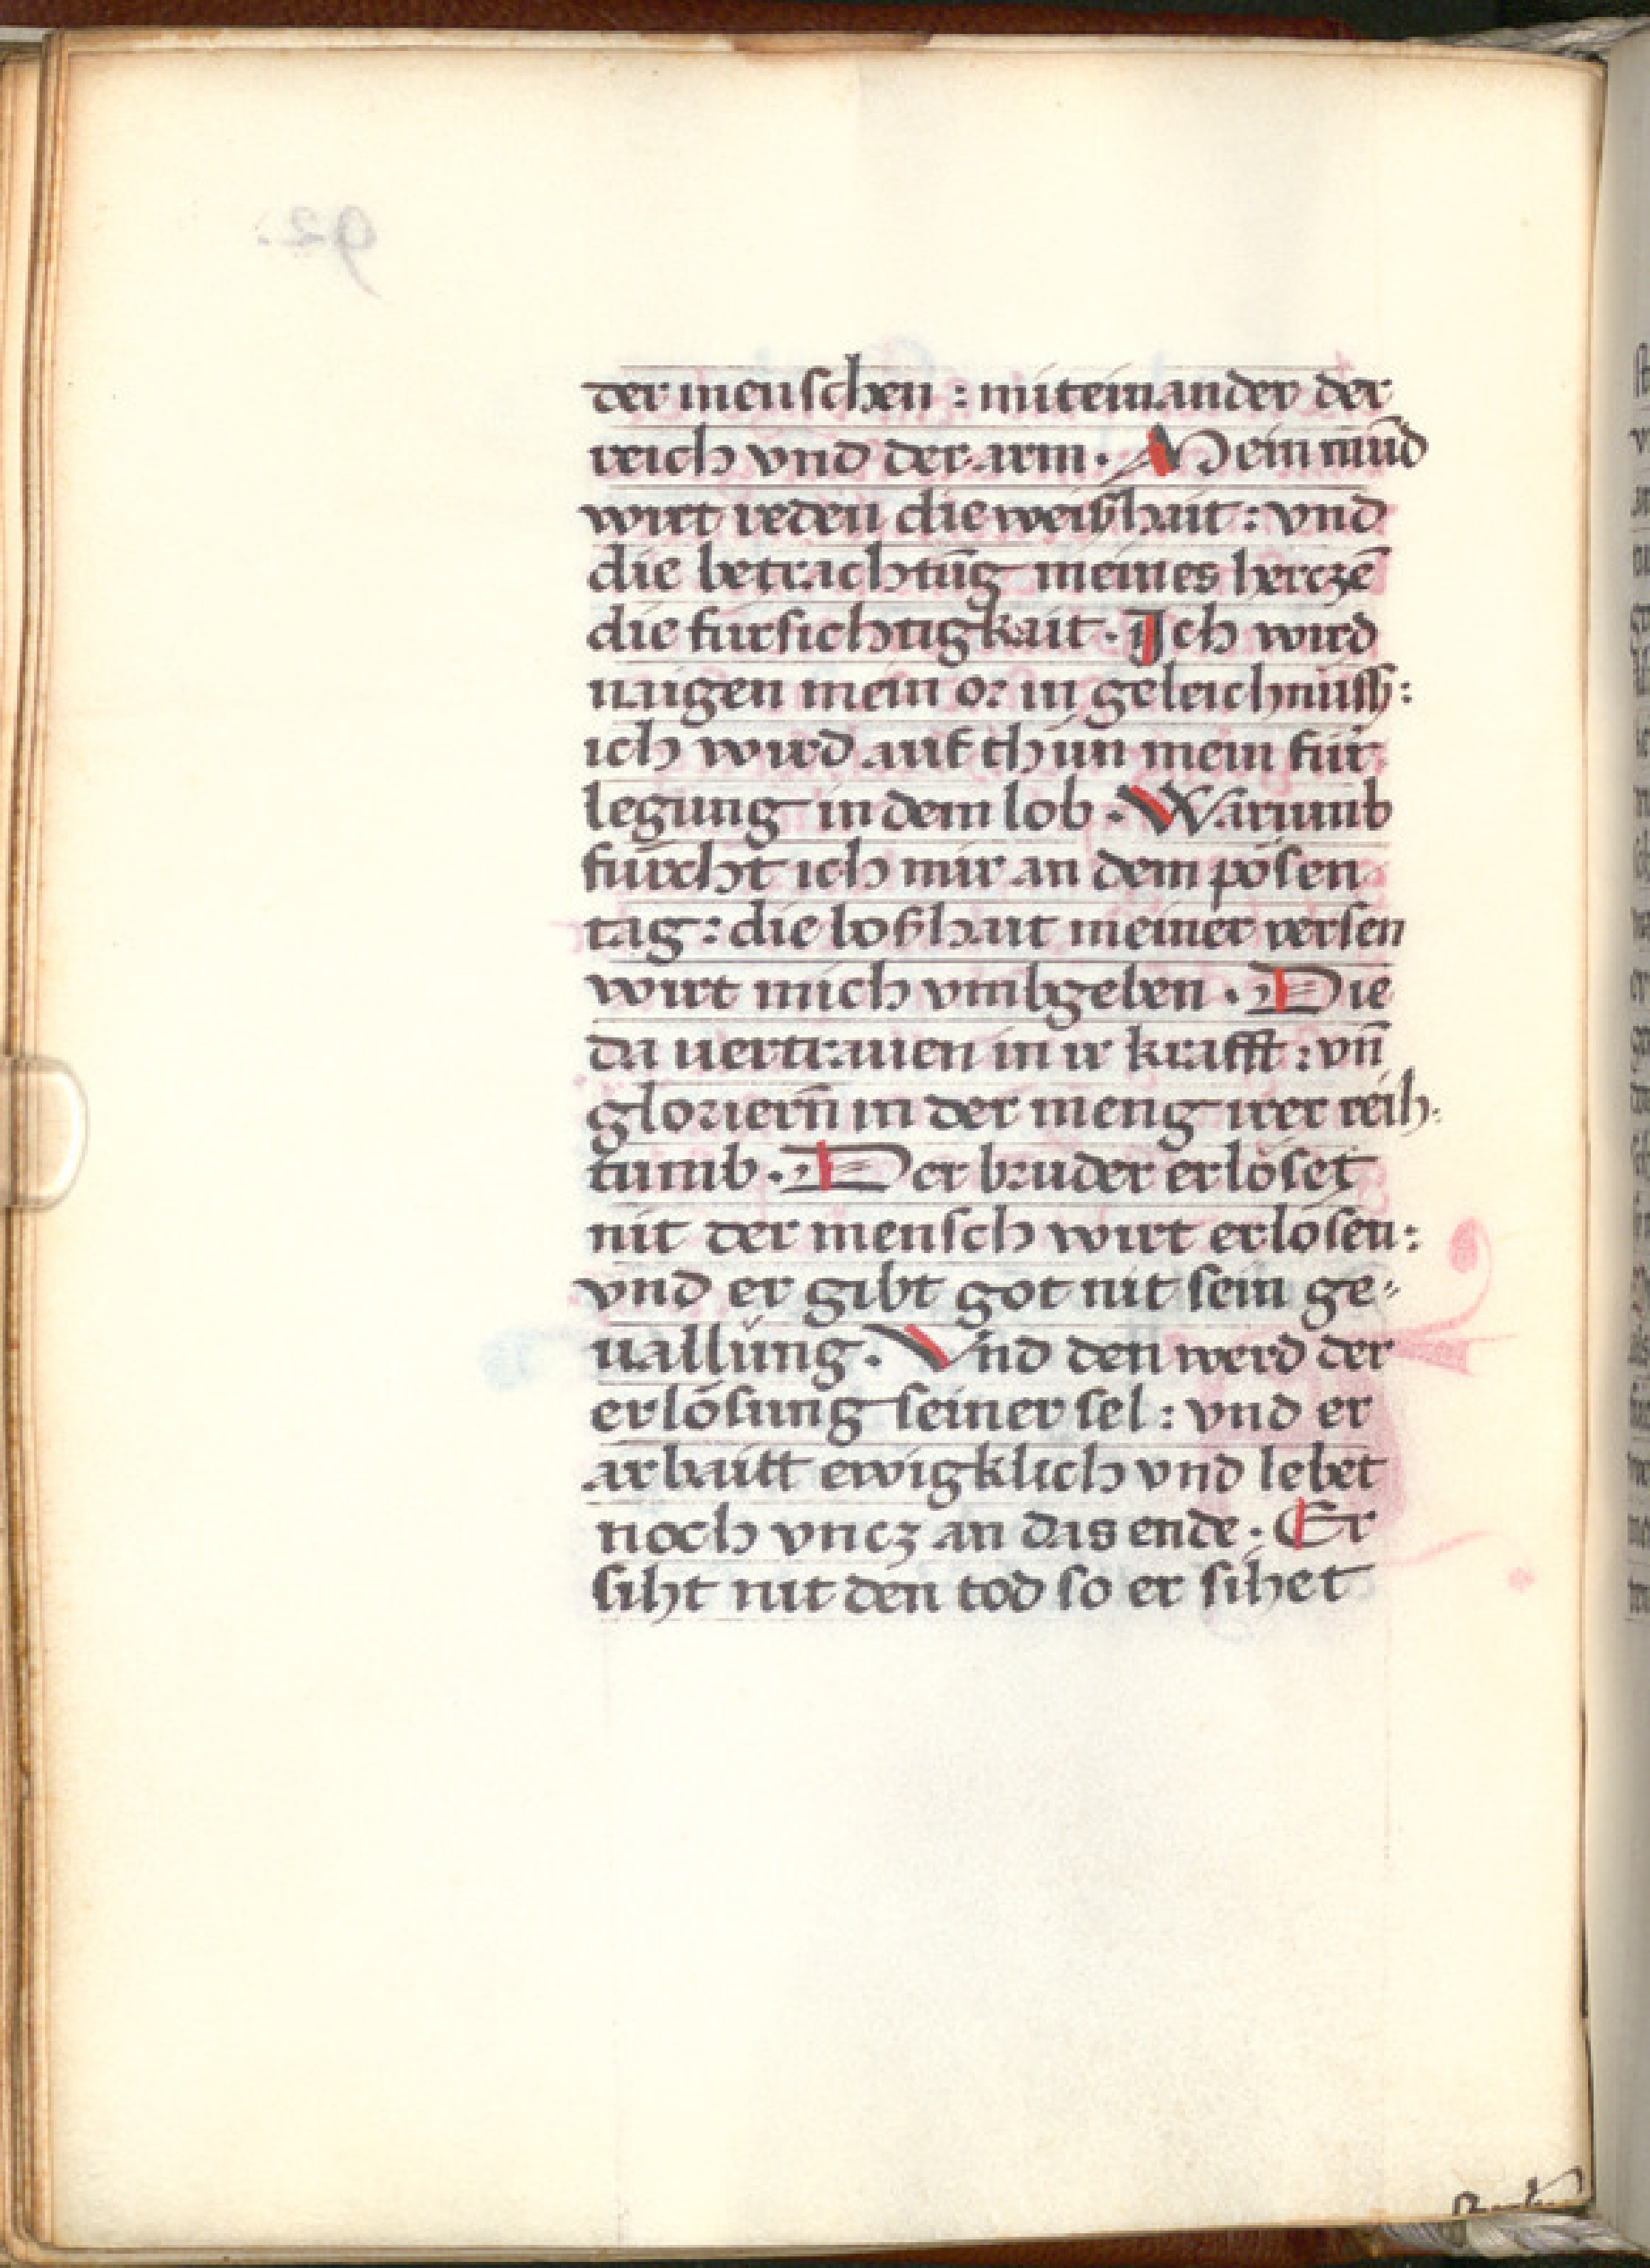 der menschen : miteinander der
reich vnd der arm · Mein mūd
wirt reden die weißhait : vnd
die betrachtūg meines herczē
die fürsichtigkait · Ich wird
naigen mein or in geleichnüss :
ich wird auf thůn mein für
legung in dem lob · Warumb
fürcht ich mir an dem pösen
tag : die boßhait meiner versen
wirt mich vmbgeben · Die
da uertrauen in ir krafft : vn̄
gloriern̄ in der meng irer reih-
tumb · Der bruder erlöset
nit der mensch wirt erlösen :
vnd er gibt got nit sein ge-
uallūng · Vnd den werd der
erlösung seiner sel : vnd er
arbaitt ewigklich vnd lebet
noch vncz an das ende · Er
siht nit den tod so er sihet